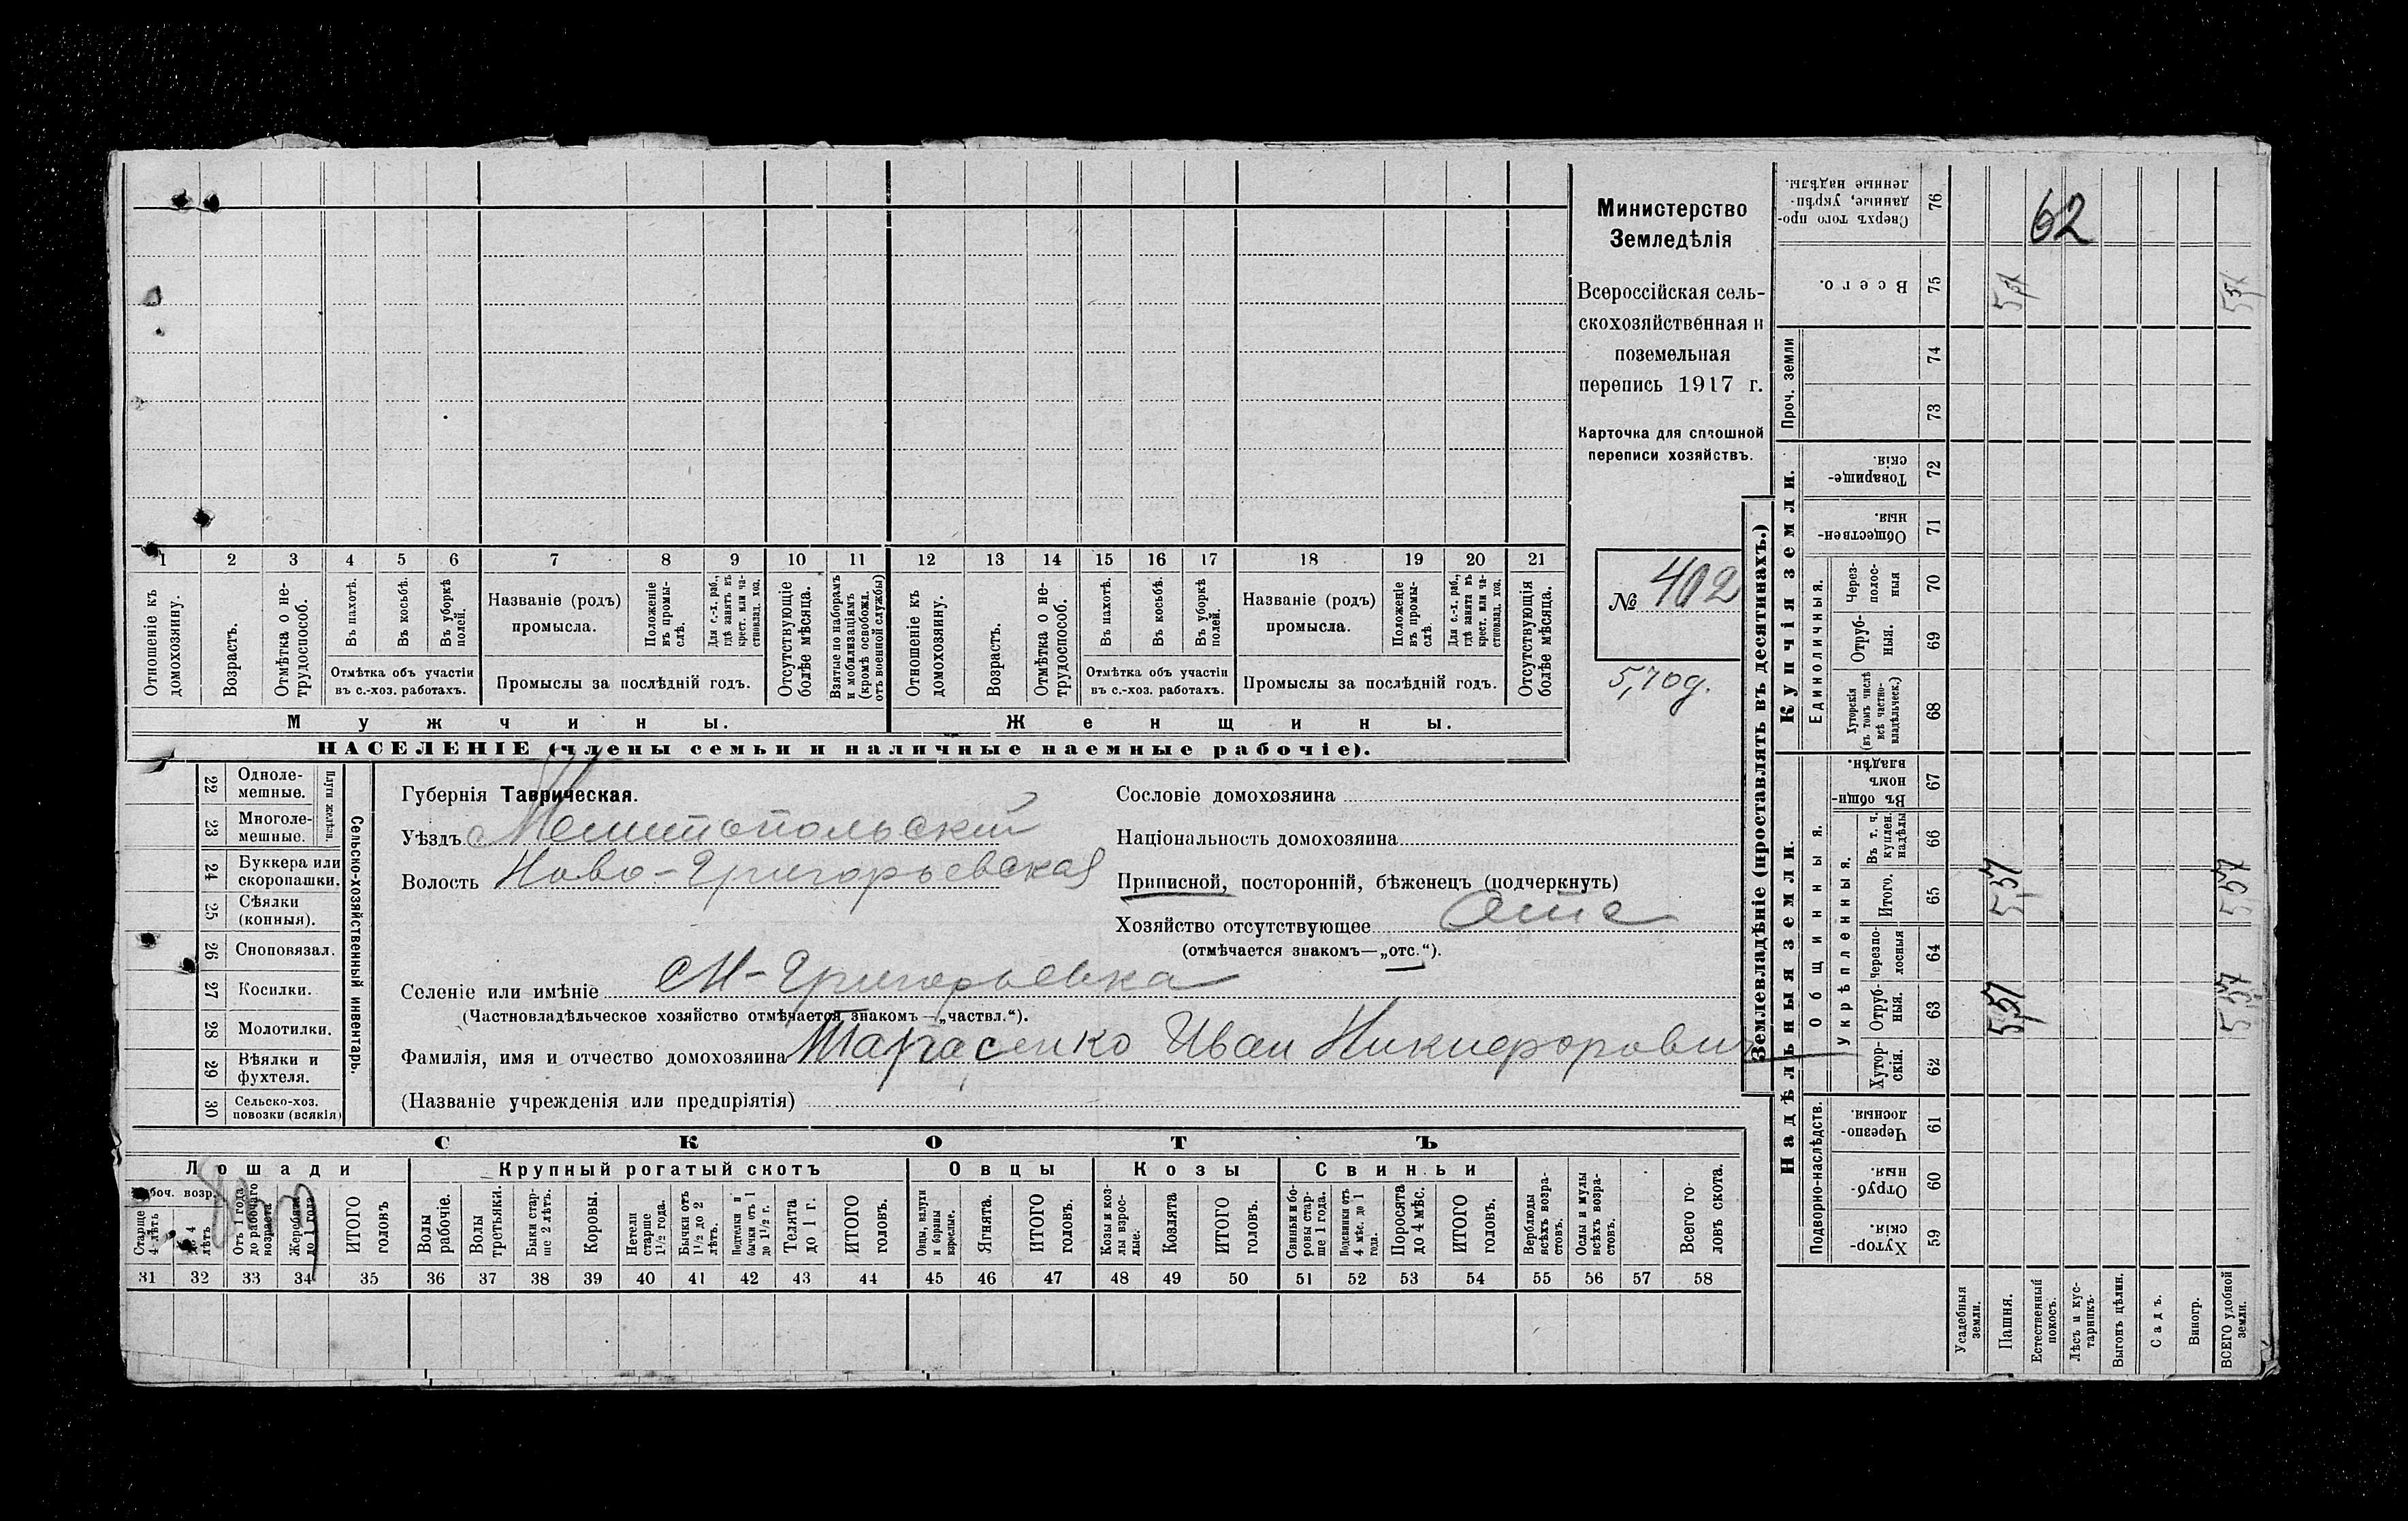 Министерство
Земледѣлія
Всероссійская сель-
скохозяйственная и
поземельная
перепись 1917 г.
Карточка для сплошной
переписи хозяйствъ.
№ 402
1 2 3 4 5 6 7 8 9 10 11 12 13 14 15 16 17 18 19 20 21
Отношеніе къ домохозяину.
Возрастъ.
Отмѣтка о не-трудоспособ.
Въ пахотѣ.
Въ косьбѣ.
Въ уборкѣ полей.
Отмѣтка объ участіи
въ с.-хоз. работахъ.
Названіе (родъ)
промысла.
Положеніе въ промы-слѣ.
Для с.-х. раб., гдѣ занятъ въ крест. или ча-стновлад. хоз.
Промыслы за послѣдній годъ.
Отсутствующіе болѣе мѣсяца.
Взятые по наборамъ и мобилизаціямъ (кромѣ освобожд. отъ военной службы)
Отношеніе къ домохозяину.
Возрастъ.
Отмѣтка о не-трудоспособ.
Въ пахотѣ.
Въ косьбѣ.
Въ уборкѣ полей.
Отмѣтка объ участіи
въ с.-хоз. работахъ.
Названіе (родъ)
промысла.
Положеніе въ промы-слѣ.
Для с.-х. раб., гдѣ занята въ крест. или ча-стновлад. хоз.
Промыслы за послѣдній годъ.
Отсутствующія болѣе мѣсяца.
Мужчины.
Женщины.
НАСЕЛЕНІЕ (члены семьи и наличные наемные рабочіе).
22 Одноле-мешные.
23 Многоле-мешные.
24 Буккера или скоропашки.
25 Сѣялки (конныя).
26 Сноповязал.
27 Косилки.
28 Молотилки.
29 Вѣялки и фухтеля.
30 Сельско-хоз. повозки (всякія)
Сельско-хозяйственный инвентарь.
Губернія Таврическая.
Уѣздъ Мелитопольскій
Волость Ново-Григорьевская
Сословіе домохозяина
Національность домохозяина
Приписной, посторонній, бѣженецъ (подчеркнуть)
Хозяйство отсутствующее Отс
(отмѣчается знакомъ—„отс.“).
Селеніе или имѣніе Н-Григорьевка
(Частновладѣльческое хозяйство отмѣчается знакомъ—„частвл.“).
Фамилія, имя и отчество домохозяина Тарасенко Иван Никифорович
(Названіе учрежденія или предпріятія)
СКОТЪ
Лошади
Крупный рогатый скотъ
Овцы
Козы
Свиньи
Старше 4 лѣтъ
лѣтъ
Отъ 1 года до рабочаго возраста
Жеребята до 1 года
ИТОГО головъ
Волы рабочіе.
Волы третьяки.
Быки стар-ше 2 лѣтъ.
Коровы.
Нетели старше 1½ года.
Бычки отъ 1½ до 2 лѣтъ.
Подтелки и бычки отъ 1 до 1½ г.
Телята до 1 г.
ИТОГО головъ.
Овцы, валухи и бараны взрослые.
Ягнята.
ИТОГО головъ.
Козы и коз-лы взрос-лые.
Козлята
ИТОГО головъ.
Свиньи и бо-ровы стар-ше 1 года.
Подсвинки отъ 4 мѣс. до 1 года.
Поросята до 4 мѣс.
ИТОГО головъ.
Верблюды всѣхъ возра-стовъ.
Ослы и мулы всѣхъ возра-стовъ.
Всего го-ловъ скота.
31 32 33 34 35 36 37 38 39 40 41 42 43 44 45 46 47 48 49 50 51 52 53 54 55 56 57 58
Землевладѣніе (проставлять въ десятинахъ.)
Надѣльныя земли.
Купчія земли.
Проч. земли
Подворно-наслѣдств.
Общинныя.
Укрѣпленныя.
Единоличныя.
Хутор-скія. 59
Отруб-ныя. 60
Черезпо-лосныя. 61
Хутор-скія. 62
Отруб-ныя. 63
Черезпо-лосныя 64
Итого. 65
Въ т. ч. куплен. надѣлы 66
Въ общи-номъ владѣн. 67
Хуторскія (въ томъ числѣ всѣ частно-владѣльческ.) 68
Отруб-ныя. 69
Через-полос-ныя 70
Обществен-ныя. 71
Товарище-скія. 72
73
74
Всего. 75
Сверхъ того про-данные, укрѣп-ленные надѣлы. 76
Усадебныя земли.
Пашня.
Естественный покосъ.
Лѣсъ и кус-тарникъ.
Выгонъ цѣлин.
Садъ.
Виногр.
ВСЕГО удобной земли.
62